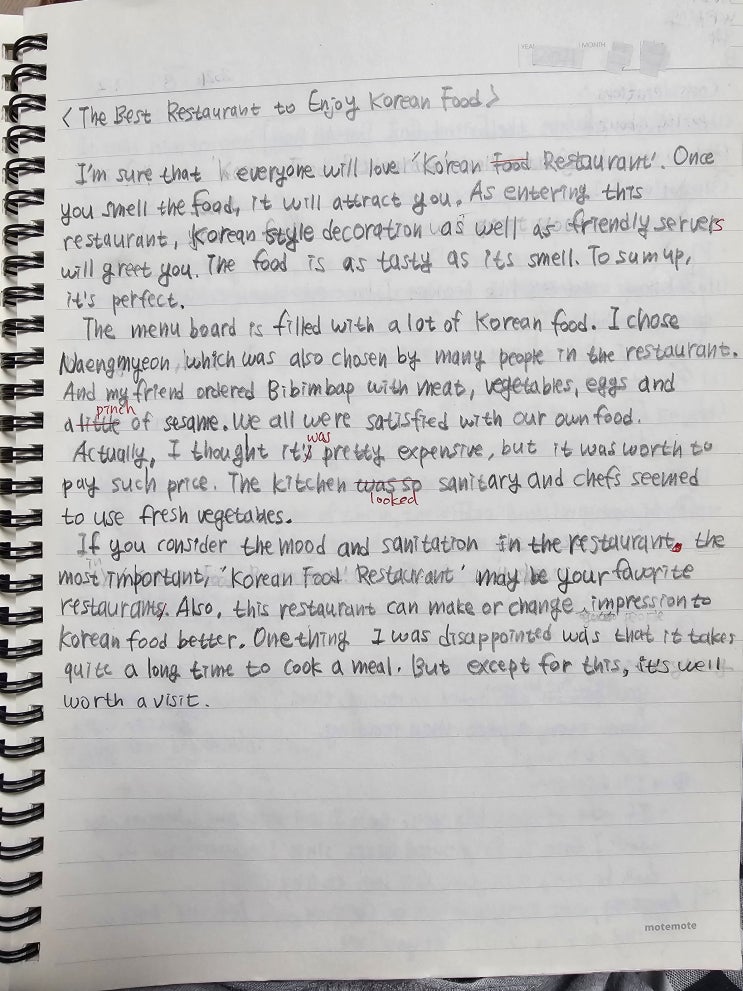 YEAR MONTH
<The Best Restaurant to Enjoy Korean Food>
I'm sure that everyone will love 'Korean Food Restaurant'. Once
you smell the food, it will attract you. As entering this
restaurant, Korean style decoration as well as friendly servers
will greet you. The food is as tasty as its smell. To sum up,
it's perfect.
The menu board is filled with a lot of Korean food. I chose
Naengmyeon, which was also chosen by many people in the restaurant.
And my friend ordered Bibimbap with meat, vegetables, eggs and
pinch
a little of sesame. We all were satisfied with our own food.
was
Actually, I thought it's pretty expensive, but it was worth to
pay such price. The kitchen was so sanitary and chefs seemed
looked
to use fresh vegetables.
If you consider the mood and sanitation in the restaurant. the
most important, 'Korean Food Restaurant' may be your favorite
restaurants. Also, this restaurant can make or change impression to
Korean food better. One thing I was disappointed was that it takes
quite a long time to cook a meal. But except for this, it's well
worth a visit.
motemote